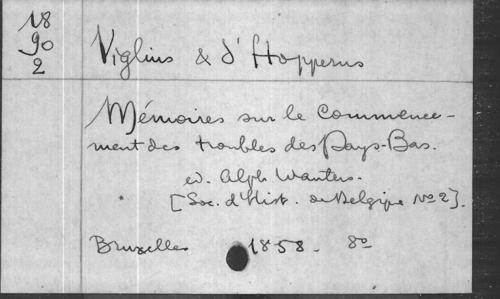 18
90
2
Viglius & d'Hopperus
Mémoires sur le Commence-
ment des troubles des Pays-Bas.
ed. Alph Wauters.
[Soc. d'Hist. de Belgique No 2].
Bruxelles 1858. 8o